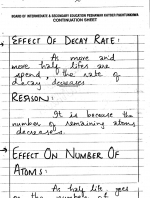 BOARD OF INTERMEDIATE & SECONDARY EDUCATION PESHAWAR
CONTINUATION SHEET
EFFECT OF DECAY RATE:
As more and
more half lives are
spend, the rate of
decay decreases.
REASON:
It is because the
number of remaining atoms
decreases.
EFFECT ON NUMBER OF
ATOMS:
As half life goes
on the number of